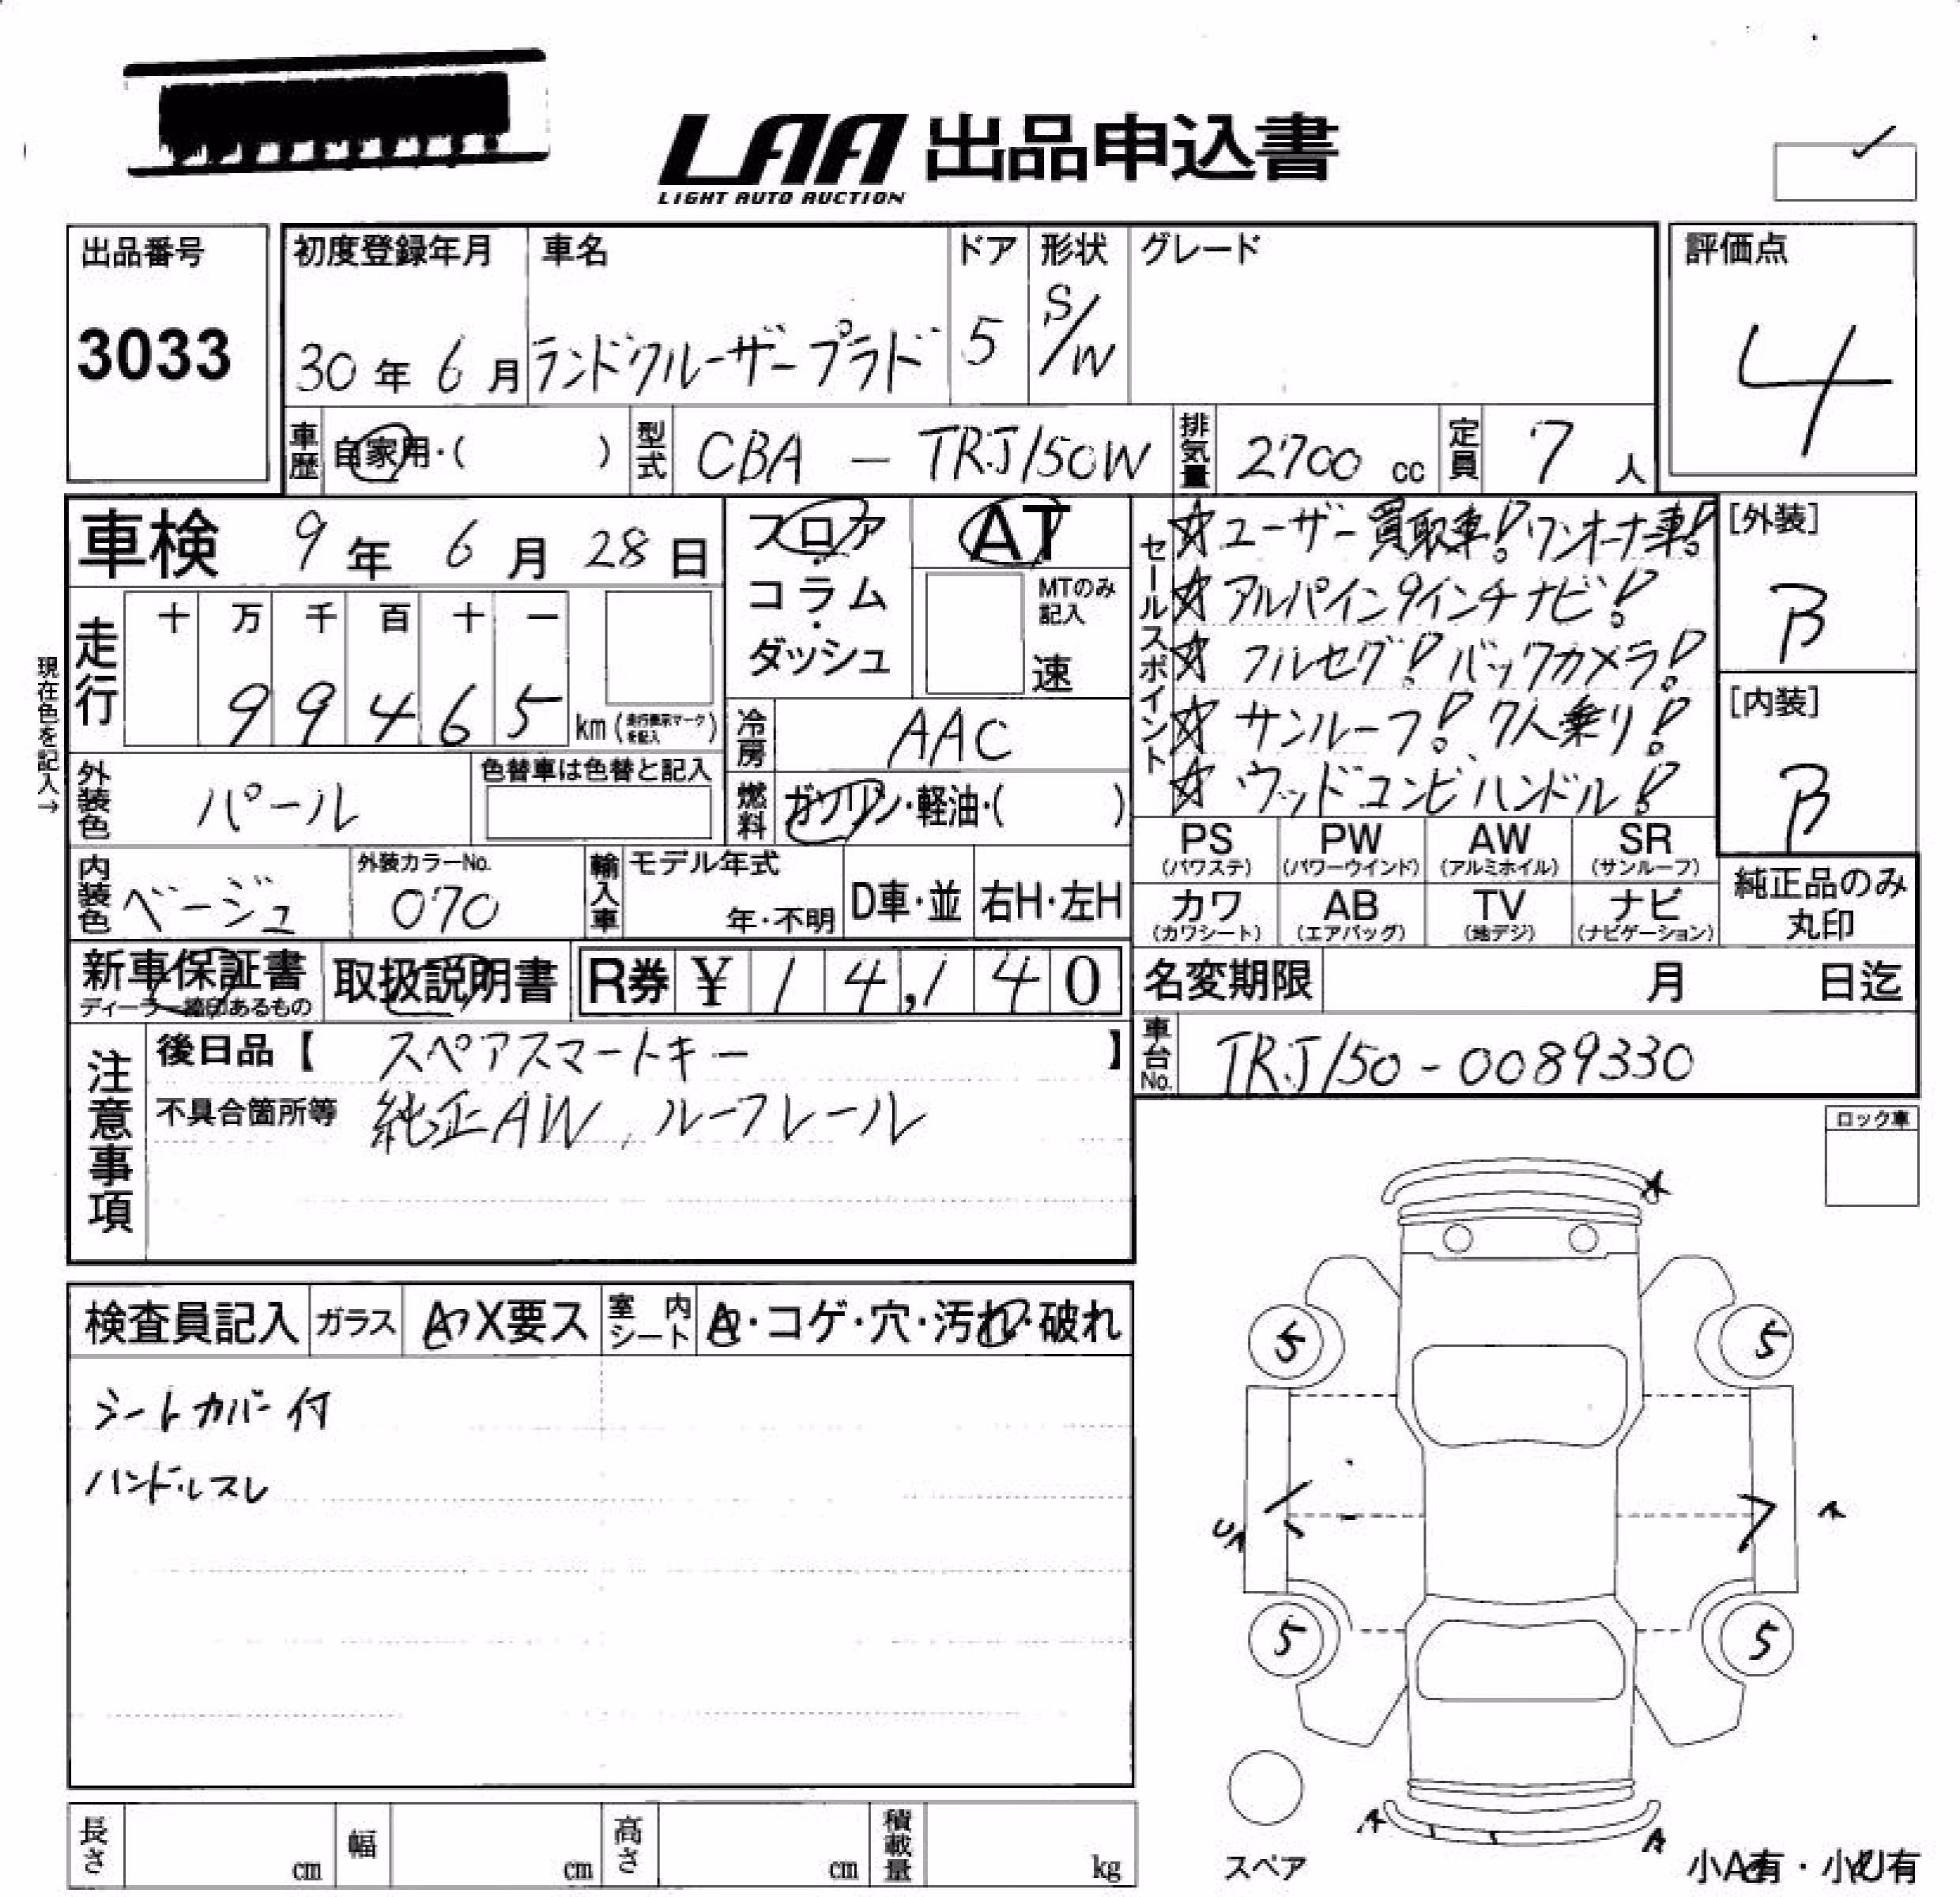 LAA 出品申込書
LIGHT AUTO AUCTION
出品番号
3033
初度登録年月
30年 6月
車名
ランドクルーザープラド
ドア
5
形状
S/W
グレード
評価点
4
車歴 自家用・( )
型式 CBA - TRJ150W
排気量 2700 cc
定員 7 人
車検 9年 6月 28日
フロア・コラム・ダッシュ
AT
MTのみ記入
速
セールスポイント
☆ユーザー買取車! ワンオーナー車!
☆アルパイン9インチナビ!
☆フルセグ! バックカメラ!
☆サンルーフ! 7人乗り!
☆ウッドコンビハンドル!
[外装]
B
[内装]
B
現在色を記入→
走行
十 万 千 百 十 一
9 9 4 6 5 km (走行表示マークを記入)
冷房 AAC
燃料 ガソリン・軽油・( )
外装色 パール
色替車は色替と記入
内装色 ベージュ
外装カラーNo.
070
輸入車 モデル年式
年・不明
D車・並
右H・左H
PS (パワステ)
PW (パワーウインド)
AW (アルミホイル)
SR (サンルーフ)
カワ (カワシート)
AB (エアバッグ)
TV (地デジ)
ナビ (ナビゲーション)
純正品のみ丸印
新車保証書
ディーラー捺印あるもの
取扱説明書
R券 ¥ 14,140
名変期限 月 日迄
車台No. TRJ150-0089330
注意事項
後日品【 スペアスマートキー 】
不具合箇所等 純正AW, ルーフレール
ロック車
検査員記入
ガラス A・X要ス
室内シート A・コゲ・穴・汚れ・破れ
シートカバー付
ハンドルスレ
A
5 5
UA
A
5 5
A
A
スペア
小A有・小U有
長さ cm
幅 cm
高さ cm
積載量 kg